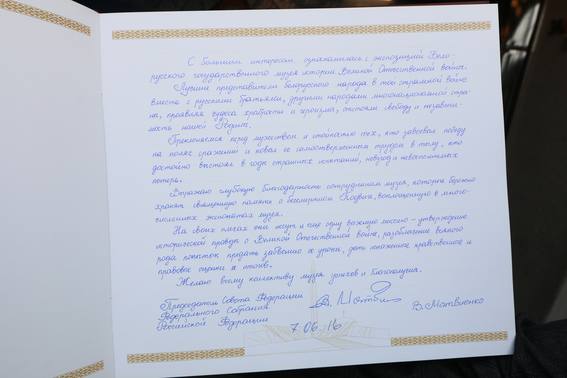 С большим интересом ознакомилась с экспозицией Бело-
русского государственного музея истории Великой Отечественной войны.
Лучшие представители белорусского народа в той страшной войне
вместе с русскими братьями, другими народами многонациональной стра-
ны, проявляя чудеса храбрости и героизма, отстояли свободу и независи-
мость нашей Родины.
Преклоняемся перед мужеством и стойкостью тех, кто завоевал победу
на полях сражений и ковал ее самоотверженным трудом в тылу, кто
достойно выстоял в годы страшных испытаний, невзгод и невосполнимых
потерь.
Выражаю глубокую благодарность сотрудникам музея, которые бережно
хранят священную память о бессмертном Подвиге, воплощенную в много-
численных экспонатах музея.
На своих плечах они несут и еще одну важную миссию – утверждение
исторической правды о Великой Отечественной войне, разоблачение всякого
рода попыток предать забвению ее уроки, дать искаженное нравственное и
правовое оценки ее итогов.
Желаю всему коллективу музея успехов и благополучия.
Председатель Совета Федерации
Федерального Собрания
Российской Федерации
В. Матвиенко
7.06.16